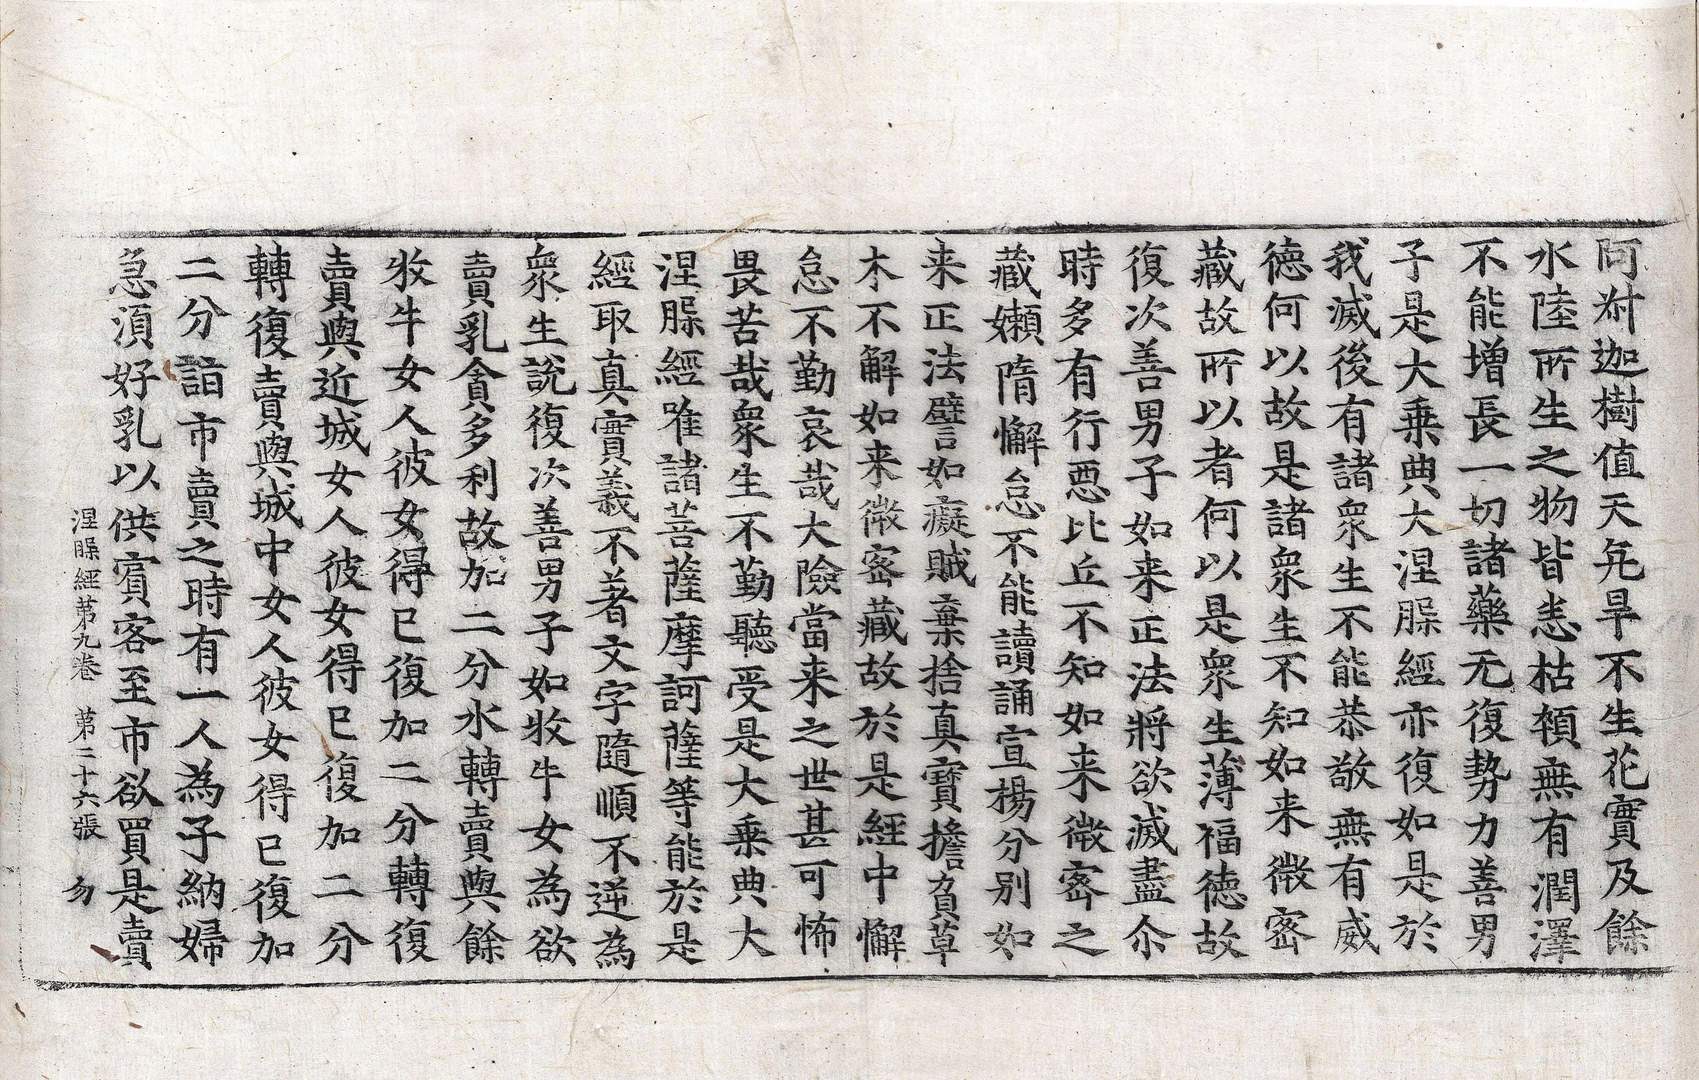 阿尗迦樹值天亢旱不生花實及餘
水陸所生之物皆悉枯顇無有潤澤
不能增長一切諸藥无復勢力善男
子是大乗典大涅槃經亦復如是於
我滅後有諸衆生不能恭敬無有威
德何以故是諸衆生不知如来微密
藏故所以者何以是衆生薄福德故
復次善男子如来正法將欲滅盡尒
時多有行惡比丘不知如来微密之
藏嬾隋懈怠不能讀誦宣楊分別如
来正法譬如癡賊棄捨真寶擔負草
木不解如来微密藏故於是經中懈
怠不勤哀哉大險當来之世甚可怖
畏苦哉衆生不勤聽受是大乗典大
涅槃經唯諸菩薩摩訶薩等能於是
經取真實義不著文字隨順不逆為
衆生說復次善男子如牧牛女為欲
賣乳貪多利故加二分水轉賣與餘
牧牛女人彼女得已復加二分轉復
賣與近城女人彼女得已復加二分
轉復賣與城中女人彼女得已復加
二分詣市賣之時有一人為子納婦
急湏好乳以供賓客至市欲買是賣
涅槃經第九卷 第二十六張 勿